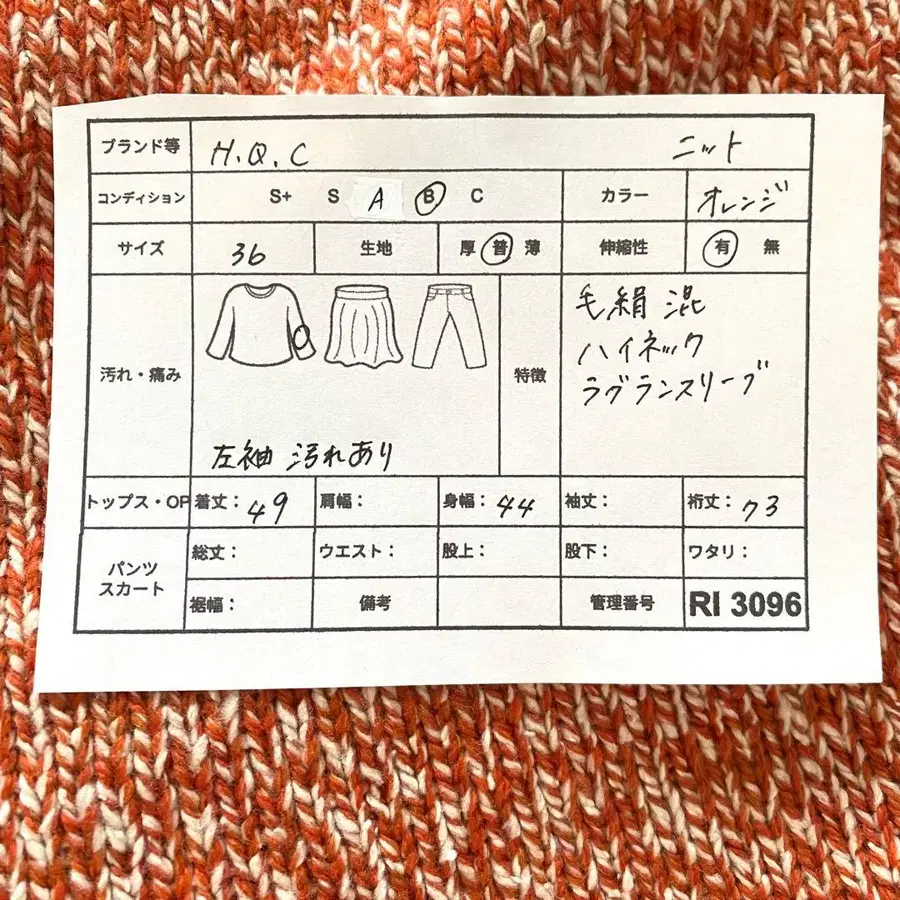 ブランド等 H.Q.C ニット
コンディション S+ S A B C カラー オレンジ
サイズ 36 生地 厚 普 薄 伸縮性 有 無
汚れ・痛み 左袖 汚れあり
特徴 毛絹混
ハイネック
ラグランスリーブ
トップス・OP 着丈：49 肩幅： 身幅：44 袖丈： 裄丈：73
パンツ
スカート
総丈： ウエスト： 股上： 股下： ワタリ：
裾幅： 備考 管理番号 RI 3096